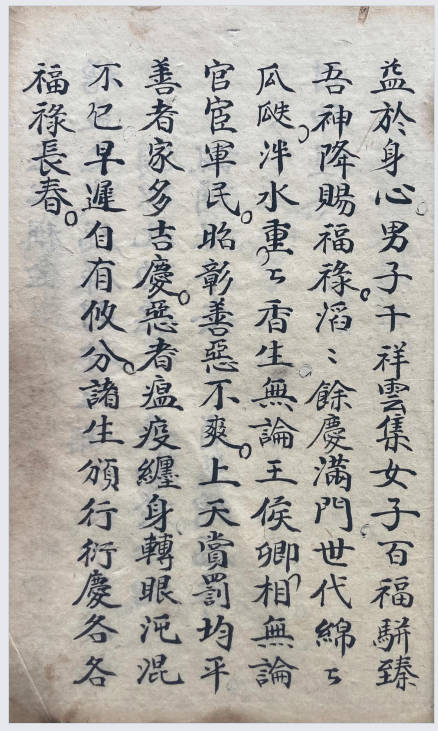 益於身心男子千祥雲集女子百福駢臻
吾神降賜福祿滔〻餘慶滿門世代綿〻
瓜瓞泮水重〻香生無論王侯卿相無論
官宦軍民昭彰善惡不爽上天賞罰均平
善者家多吉慶惡者瘟疫纏身轉眼沌混
不已早遲自有攸分諸生頒行衍慶各各
福祿長春